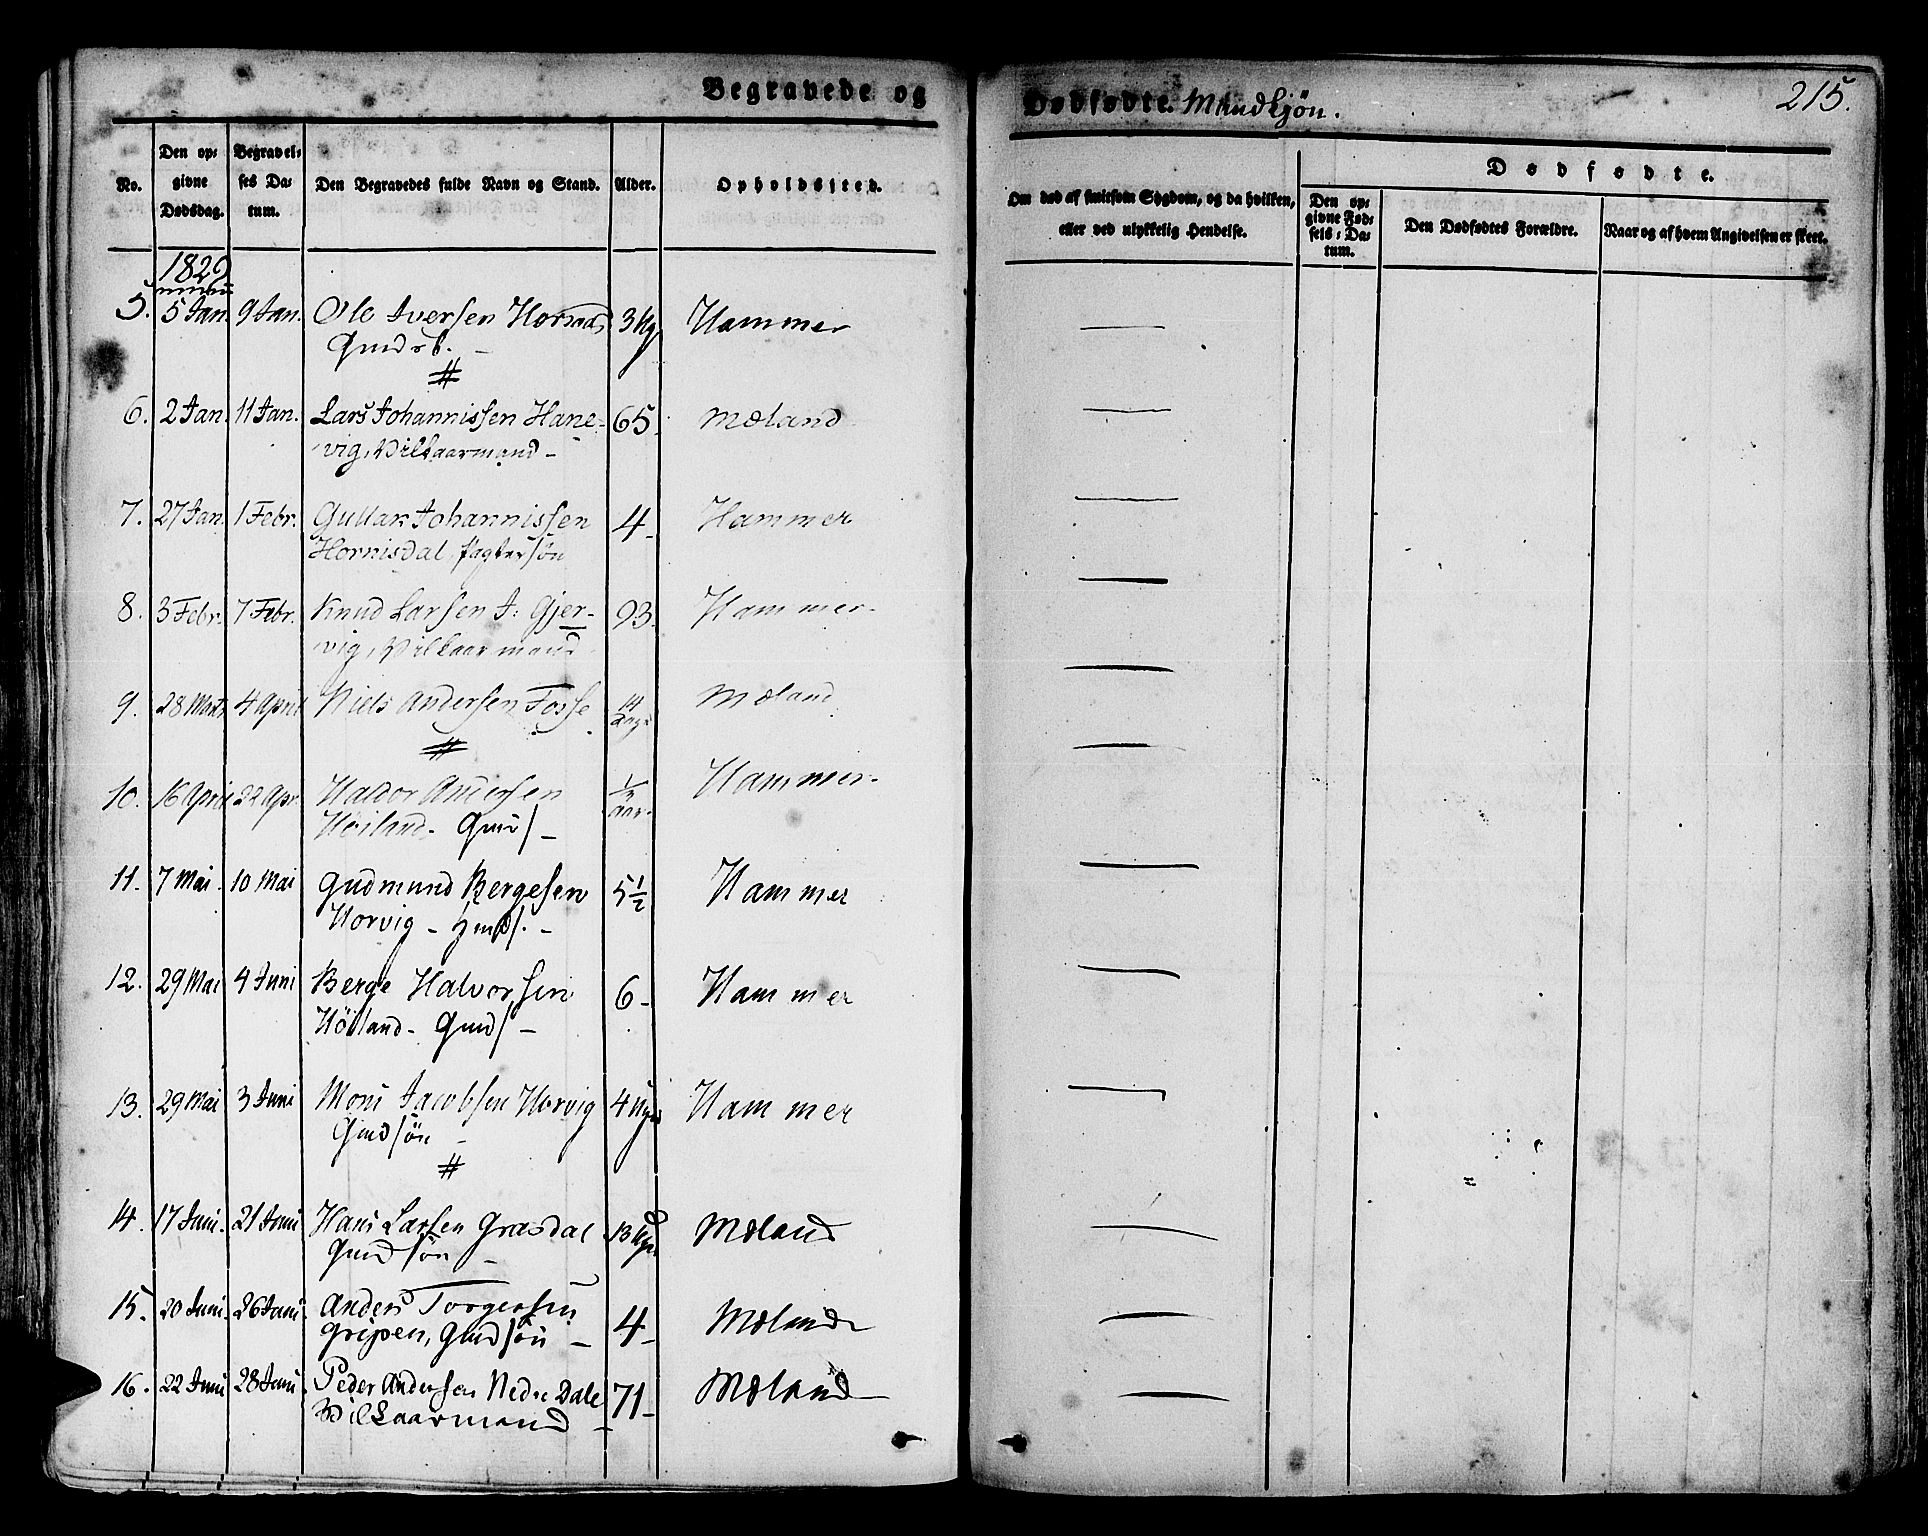 Begravede og Dødfødte. Mandkjøn. 215.
No. Den opgivne Dødsdag. Begravelses Datum. Den Begravedes fulde Navn og Stand. Alder. Opholdssted. Om død af smitsom Sygdom, og da hvilken, eller ved ulykkelig Hendelse. Dødfødte.
Den opgivne Fødsels-Datum. Den Dødfødtes Forældre. Naar og af hvem Angivelsen er skeet.
1829
5. 5 Jan. 9 Jan. Ole Iversen 3 Hammer
6. 2 Jan. 11 Jan. Lars Johannissen Hane- 65. Mæland
vig, Vilkaarmand -
7. 27 Jan. 1 Febr. Johannissen 4 - Hammer
Hornisdal
8. 3 Febr. 7 Febr. Knud Larsen I: Gjer- 93. Hammer -
vig, Vilkaarmand
9. 28 Marts 4 April Niels Andersen Fosse 14 Dage Mæland
10. 16 April 22 Apr. Haldor Andersen 1/2 Aar. Hammer -
Høiland - Gmds -
11. 7 Mai. 10 Mai Gudmund Bergesen 5 1/2 Hammer
Horvig - Hmds. -
12. 29 Mai 4 Juni Berge Halvorsen 6 - Hammer
Høiland - Gmds -
13. 29 Mai 3 Juni Mons Jacobsen Horvig 4 Uger Hammer
Gmdsøn -
14. 17 Juni. 21 Juni Hans Larsen Grasdal 13 Mæland
Gmdsøn -
15. 20 Juni. 26 Juni. Anders Torgersen 4 - Mæland
Gripen, Gmdsøn -
16. 22 Juni 28 Juni Peder Andersen Nedre Dale 71 - Mæland
Vilkaarmand -